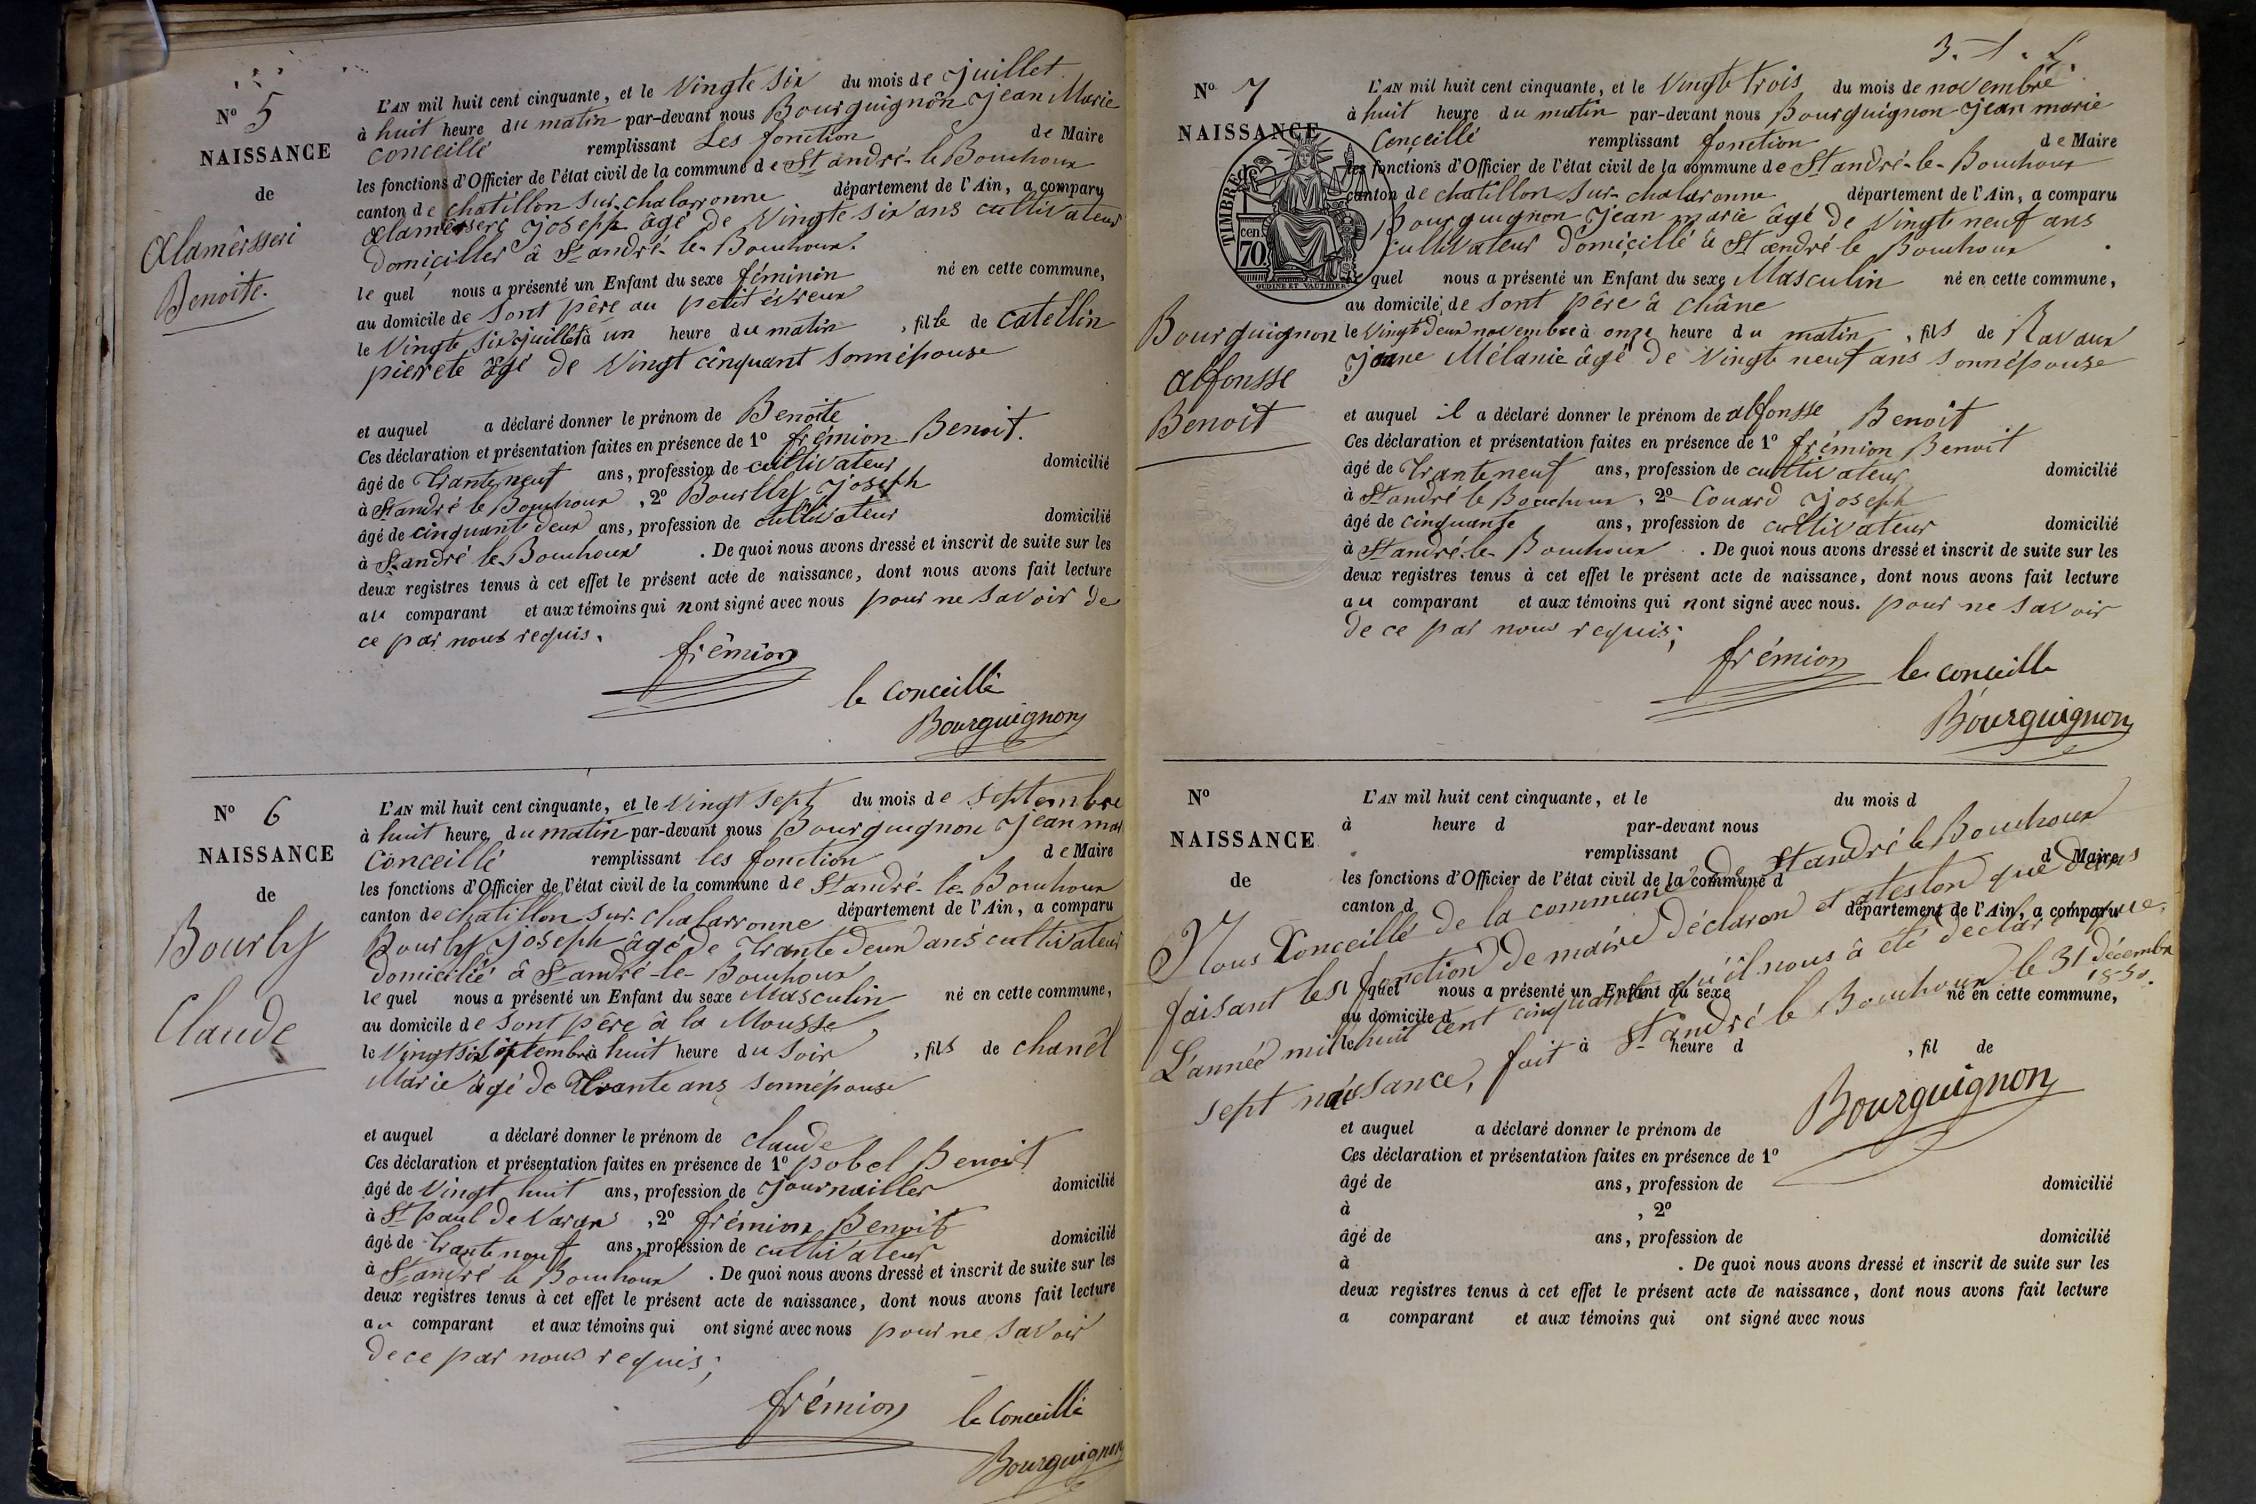 Nº 5
NAISSANCE
de
Alamèrsseri
Benoite.
L'AN mil huit cent cinquante, et le Vingte six du mois de Juillet
à huit heure du matin par-devant nous Bourguignon Jean Marie
Conceillé remplissant Les fonction de Maire
les fonctions d'Officier de l'état civil de la commune de St andré-le-Bouchoux
canton de chatillon sur-chalarronne département de l'Ain, a comparu
Joseph âgé de Vingte six ans cultivateur
domiçiller à St andré-le-Bouchoux.
le quel nous a présenté un Enfant du sexe féminin né en cette commune,
au domicile de sont père au petit évreux
le Vingte six juillet à un heure du matin, fille de Catellin
pierete âgé de Vingt cinquant sonnépouse
et auquel a déclaré donner le prénom de Benoite
Ces déclaration et présentation faites en présence de 1º frémion Benoit.
âgé de Trante neuf ans, profession de cultivateur domicilié
à St andré le Bouchoux, 2º Bourlly Joseph
âgé de cinquante deux ans, profession de cultivateur domicilié
à St andré le Bouchoux. De quoi nous avons dressé et inscrit de suite sur les
deux registres tenus à cet effet le présent acte de naissance, dont nous avons fait lecture
au comparant et aux témoins qui nont signé avec nous pour ne savoir de
ce par nous requis.
frémion
le conceillé
Bourguignon
Nº 6
NAISSANCE
de
Bourly
Claude
L'AN mil huit cent cinquante, et le Vingt sept du mois de septembre
à huit heure du matin par-devant nous Bourguignon Jean mar
Conceillé remplissant les fonction de Maire
les fonctions d'Officier de l'état civil de la commune de St andré-le-Bouchoux
canton de chatillon sur-chalarronne département de l'Ain, a comparu
Bourly Joseph âgé de Trante deux ans cultivateur
domicilié à St andré-le-Bouchoux
le quel nous a présenté un Enfant du sexe Masculin né en cette commune,
au domicile de sont père à la Mousse,
le Vingt six septembre à huit heure du soir, fils de chanel
Marie âgé de Trante ans sonnépouse
et auquel a déclaré donner le prénom de claude
Ces déclaration et présentation faites en présence de 1º pobel Benoit
âgé de Vingt huit ans, profession de Journailler domicilié
à St paul de Varax, 2º frémion Benoit
âgé de trante neuf ans, profession de cultivateur domicilié
à St andré le Bouchoux. De quoi nous avons dressé et inscrit de suite sur les
deux registres tenus à cet effet le présent acte de naissance, dont nous avons fait lecture
au comparant et aux témoins qui ont signé avec nous pour ne savoir
de ce par nous requis;
frémion
le conceillé
Bourguignon
Nº 7
NAISSANCE
TIMBRE
cen. 70
OUDINÉ ET VAUTHIER
Bourguignon
alfonsse
Benoit
L'AN mil huit cent cinquante, et le Vingte trois du mois de novembre
à huit heure du matin par-devant nous Bourguignon Jean marie
Conçeillé remplissant fonction de Maire
les fonctions d'Officier de l'état civil de la commune de St andré-le-Bouchoux
canton de chatillon sur-chalaronne département de l'Ain, a comparu
Bourguignon Jean marie âgé de Vingte neuf ans
cultivateur domiçillé à St andré le Bouchoux.
le quel nous a présenté un Enfant du sexe Masculin né en cette commune,
au domicile de sont père à châne
le Vingte deux novembre à onze heure du matin, fils de Ravaux
Jeanne Mélanie âgé de Vingte neuf ans sonnépouse
et auquel il a déclaré donner le prénom de alfonsse Benoit
Ces déclaration et présentation faites en présence de 1º frémion Benoit
âgé de Trante neuf ans, profession de cultivateur domicilié
à St andré le Bouchoux, 2º Couard Joseph
âgé de cinquante ans, profession de cultivateur domicilié
à St andré-le-Bouchoux. De quoi nous avons dressé et inscrit de suite sur les
deux registres tenus à cet effet le présent acte de naissance, dont nous avons fait lecture
au comparant et aux témoins qui nont signé avec nous. pour ne savoir
de ce par nous requis;
frémion
le conceille
Bourguignon
Nº
NAISSANCE
de
L'AN mil huit cent cinquante, et le du mois d
à heure d par-devant nous
remplissant d Maire
les fonctions d'Officier de l'état civil de la commune d
canton d département de l'Ain, a comparu
quel nous a présenté un Enfant du sexe né en cette commune,
au domicile d
le à heure d, fil de
Nous Conceillé de la commune de St andré le Bouchoux
faisant les fonction de maire déclaron et ateston que dans
L'année mil huit cent cinquante qu'il nous à été déclaré que
sept naissance, fait à St andré le Bouchoux le 31 décembre
1850.
Bourguignon
et auquel a déclaré donner le prénom de
Ces déclaration et présentation faites en présence de 1º
âgé de ans, profession de domicilié
à, 2º
âgé de ans, profession de domicilié
à. De quoi nous avons dressé et inscrit de suite sur les
deux registres tenus à cet effet le présent acte de naissance, dont nous avons fait lecture
a comparant et aux témoins qui ont signé avec nous